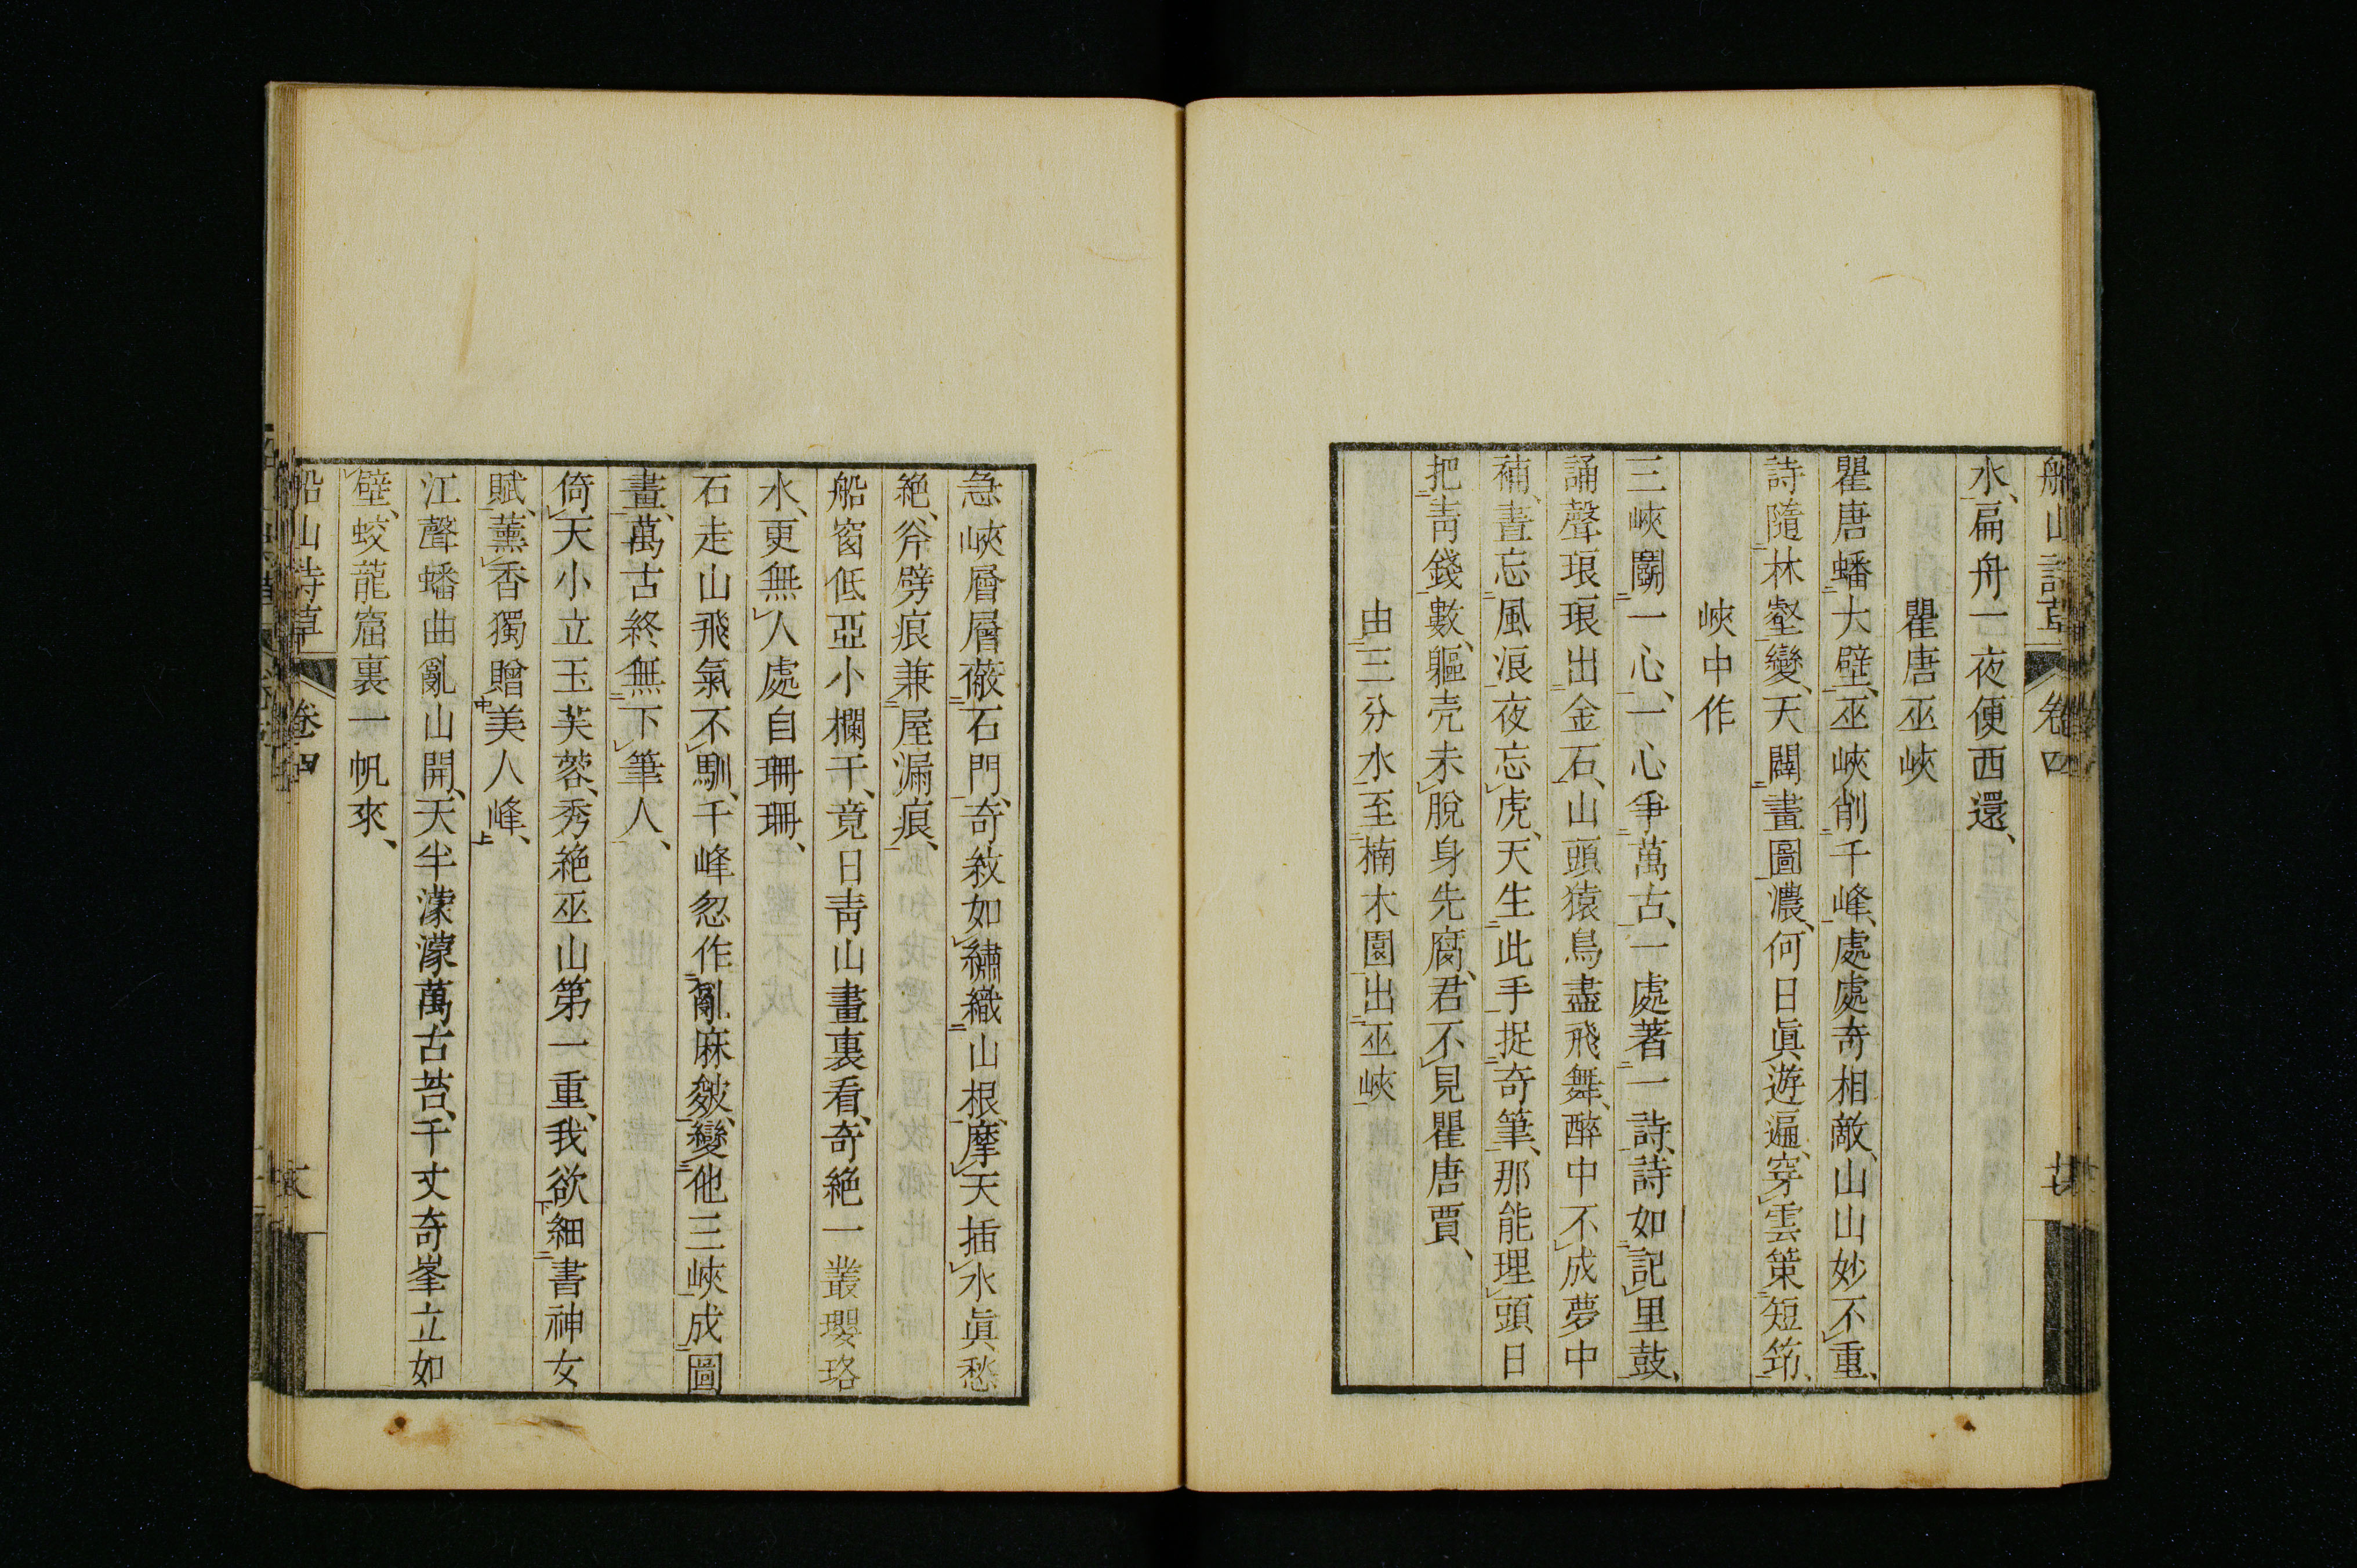 船山詩草 卷四
水、扁舟一夜便西還、
瞿唐巫峽
瞿唐蟠大壁、巫峽削千峰、處處奇相敵、山山妙不重、
詩隨林壑變、天闢畫圖濃、何日眞遊遍、穿雲策短筇、
峽中作
三峽鬬一心、一心爭萬古、一處著一詩、詩如記里鼓、
誦聲琅琅出金石、山頭猿鳥盡飛舞、醉中不成夢中
補、晝忘風浪夜忘虎、天生此手捉奇筆、那能理頭日
把靑錢數、軀壳未脫身先腐、君不見瞿唐賈、
由三分水至楠木園出巫峽
急峽層層蔽石門、奇紋如繡織山根、摩天插水眞愁
絶、斧劈痕兼屋漏痕、
船窗低亞小欄干、竟日靑山畫裏看、奇絶一叢瓔珞
水、更無人處自珊珊、
石走山飛氣不馴、千峰忽作亂麻皴、變他三峽成圖
畫、萬古終無下筆人、
倚天小立玉芙蓉、秀絶巫山第一重、我欲細書神女
賦、薰香獨贈美人峰、
江聲蟠曲亂山開、天半濛濛萬古苔、千丈奇峯立如
壁、蛟龍窟裏一帆來、
船山詩草 卷四